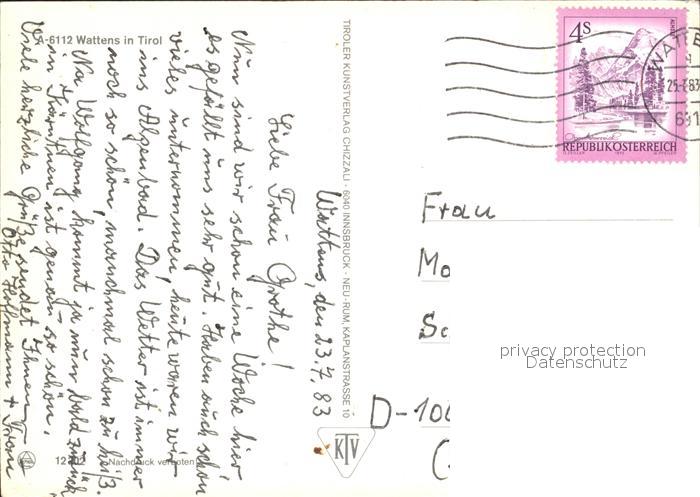 A-6112 Wattens in Tirol
Wattens, den 23.7.83
Liebe Frau Grothe!
Nun sind wir schon eine Woche hier
es gefällt uns sehr gut. Haben auch schon
vieles unternommen, heute waren wir
ins Algenbad. Das Wetter ist immer
noch so schön, manchmal schon zu heiß.
Na Wolfgang kommt ja nun bald zurück
in Kärnten ist genau so schön.
Viele herzliche Grüße sendet Ihnen
Otto Hoffmann + Frau
12 202 Nachdruck verboten
TIROLER KUNSTVERLAG CHIZZALI · 6040 INNSBRUCK - NEU-RUM, KAPLANSTRASSE 10
KTV
4S
REPUBLIK ÖSTERREICH
WATTE
25.-7.83
Frau
Mo
Sc
D-100
privacy protection
Datenschutz